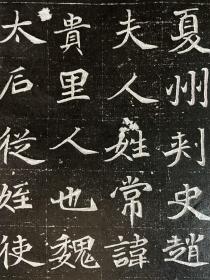 夏州刾史趙
夫人姓常諱
貴里人也魏
太后從姪使